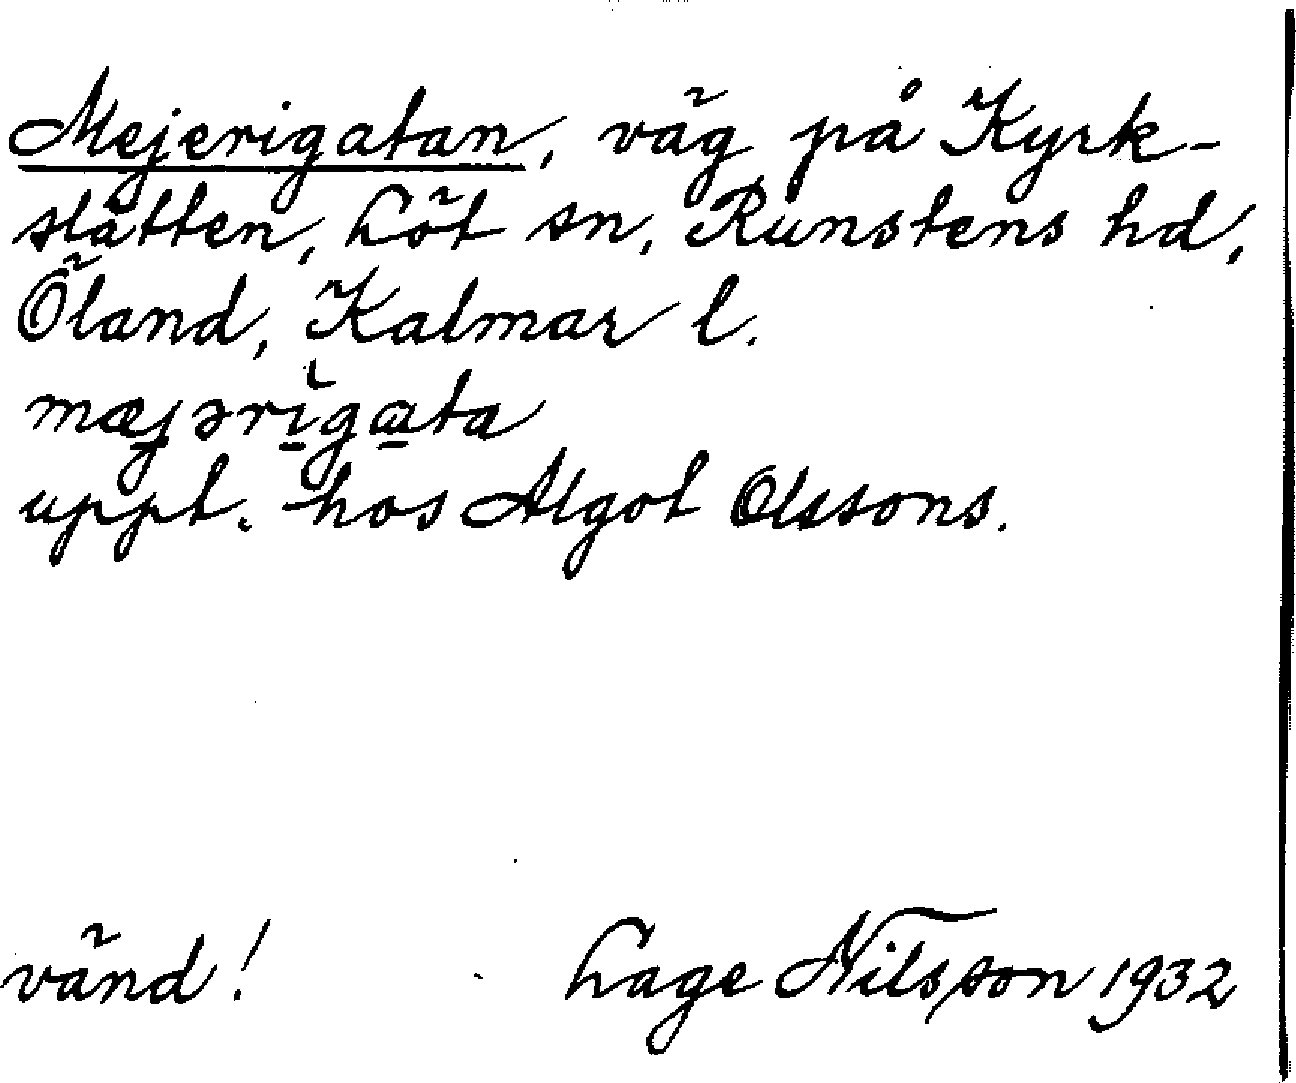 Mejerigatan, väg på Kyrk-
slätten, Löt sn, Runstens hd,
Öland, Kalmar l.
mæjərìgata
uppt. hos Algot Olssons.
vänd! Lage Nilsson 1932